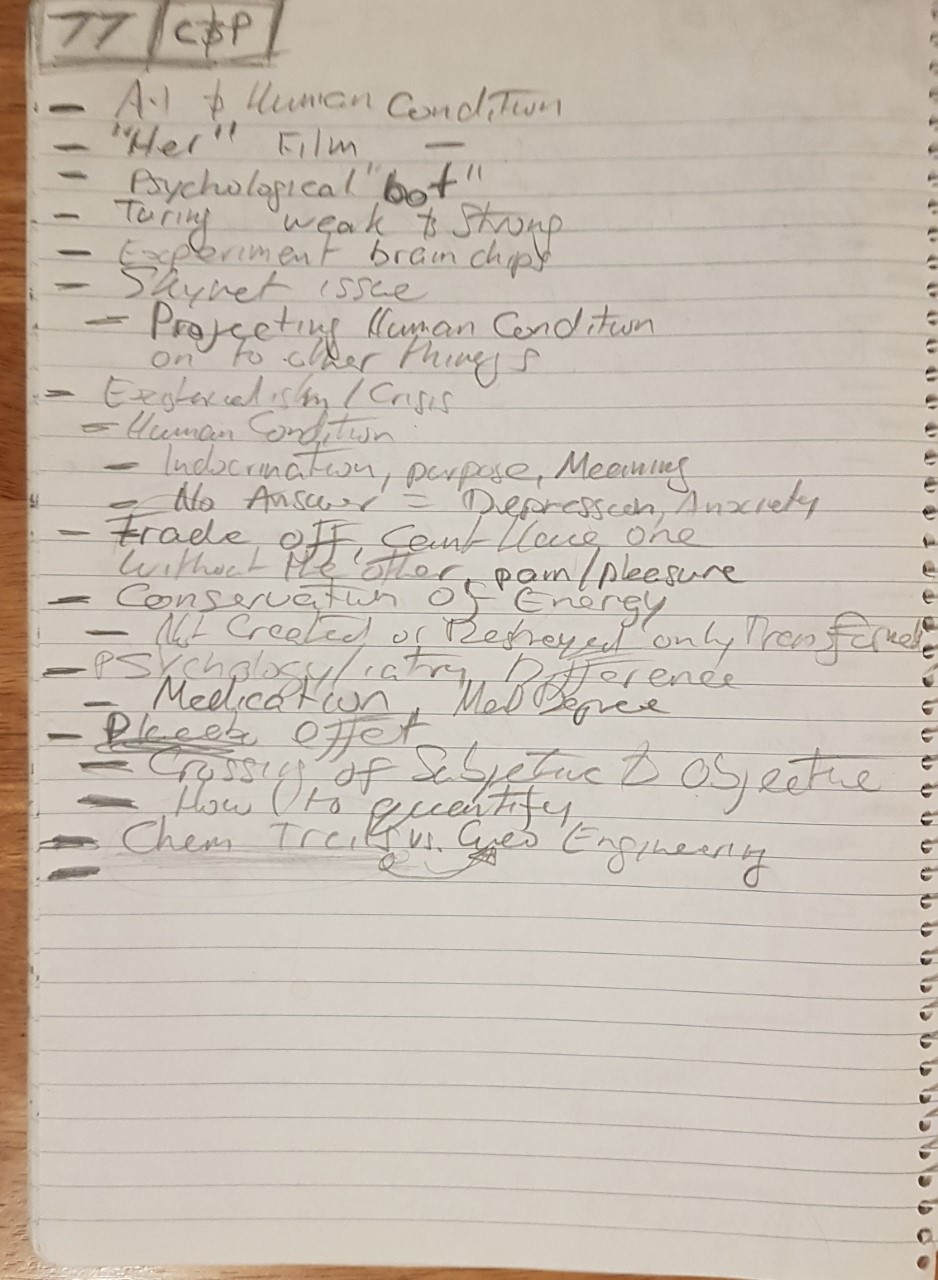 77 C&P
- A.I & Human Condition
- "Her" Film -
- Psychological "bot"
- Turing weak & Strong
- Experiment brain chips
- Skynet issue
- Projecting Human Condition
on to other things
- Existentialism / Crisis
- Human Condition
- Indocrination, purpose, Meaning
- No Answer = Depression, Anxiety
- Trade off, Can't Have one
without the other, pain/pleasure
- Conservation of Energy
- Not Created or Destroyed only Transfered
- PSychology/iatry Difference
- Medication, Med Degree
- Placebo effet
- Crossing of Subjetive & Objective
- How to quantify
- Chem Trails vs. Geo Engineering
-